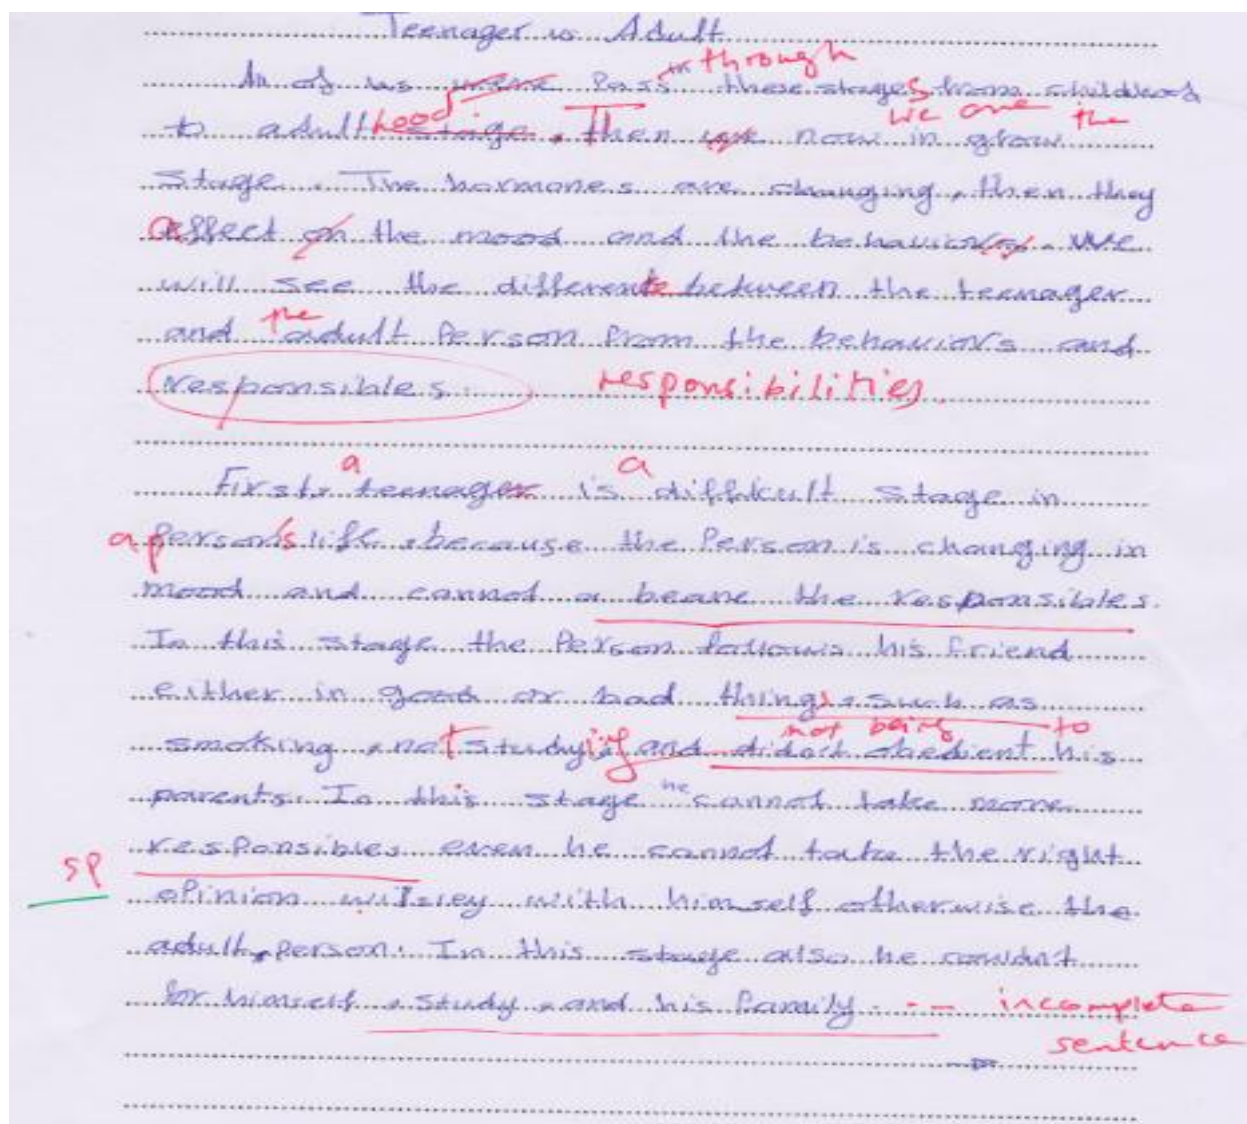 Teenager vs Adult
through
An of us were Pass these stages from childhood
hood we are the
to adult stage. Then we now in grow
Stage. The hormones are changing, then they
affect on the mood and the behaviors. We
will see the different between the teenager
the
and adult Person from the behaviors and
responsibles. responsibilities.
a a
First, teenager is difficult stage in
a p Person's life, because the Person is changing in
mood and cannot a beare the responsibles.
In this stage the Person follows his friend
either in good or bad things, such as
not being to
smoking, not studying and didn't obedient his
parents. In this stage he cannot take more
sp
responsibles even he cannot take the right
opinion with himself otherwise the
adult, person. In this stage also he
for himself, study, and his family. -- incomplete
sentence